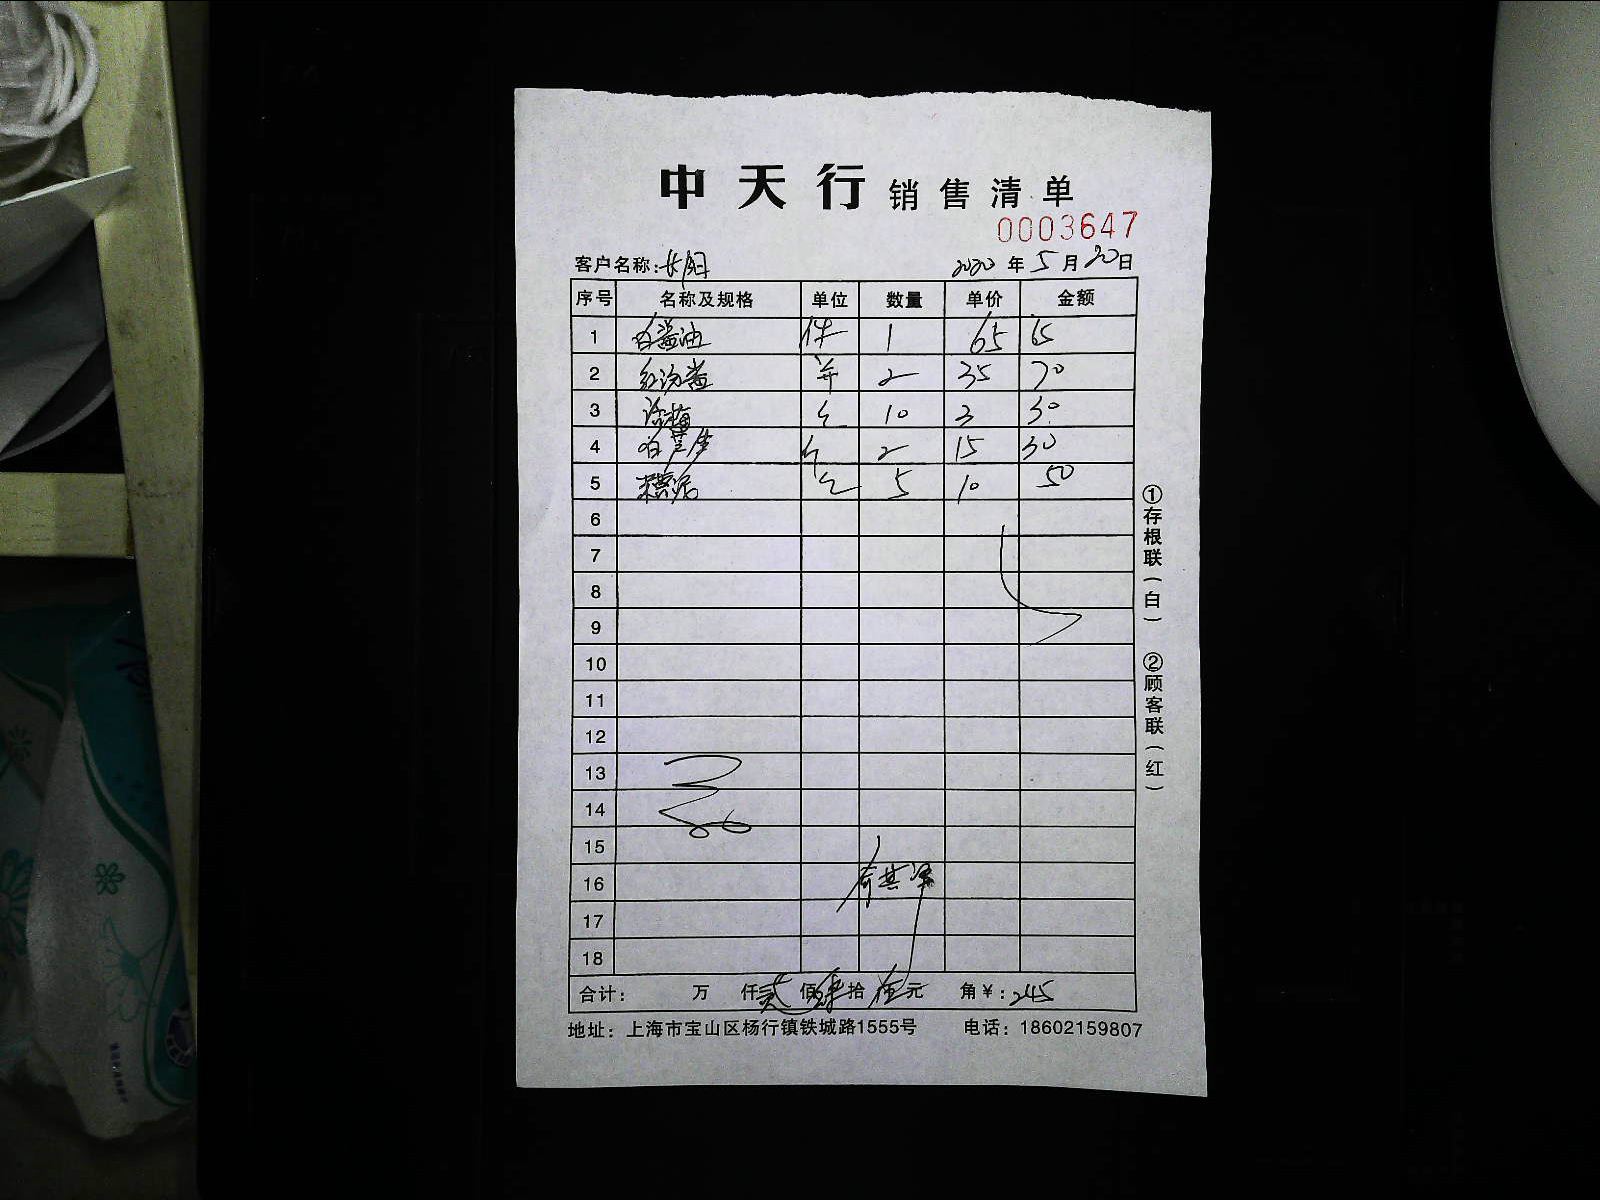 中天行 销售清单
0003647
客户名称: 2020 年 5 月 20 日
序号 名称及规格 单位 数量 单价 金额
1 件 1 65 65
2 2 35 70
3 个 10 3 30
4 个 2 15 30
5 个 5 10 50
6
7
8
9
10
11
12
13
14
15
16
17
18
合计: 万 仟 贰 佰 肆 拾 伍 元 角 ¥: 245
地址: 上海市宝山区杨行镇铁城路1555号 电话: 18602159807
①存根联(白) ②顾客联(红)